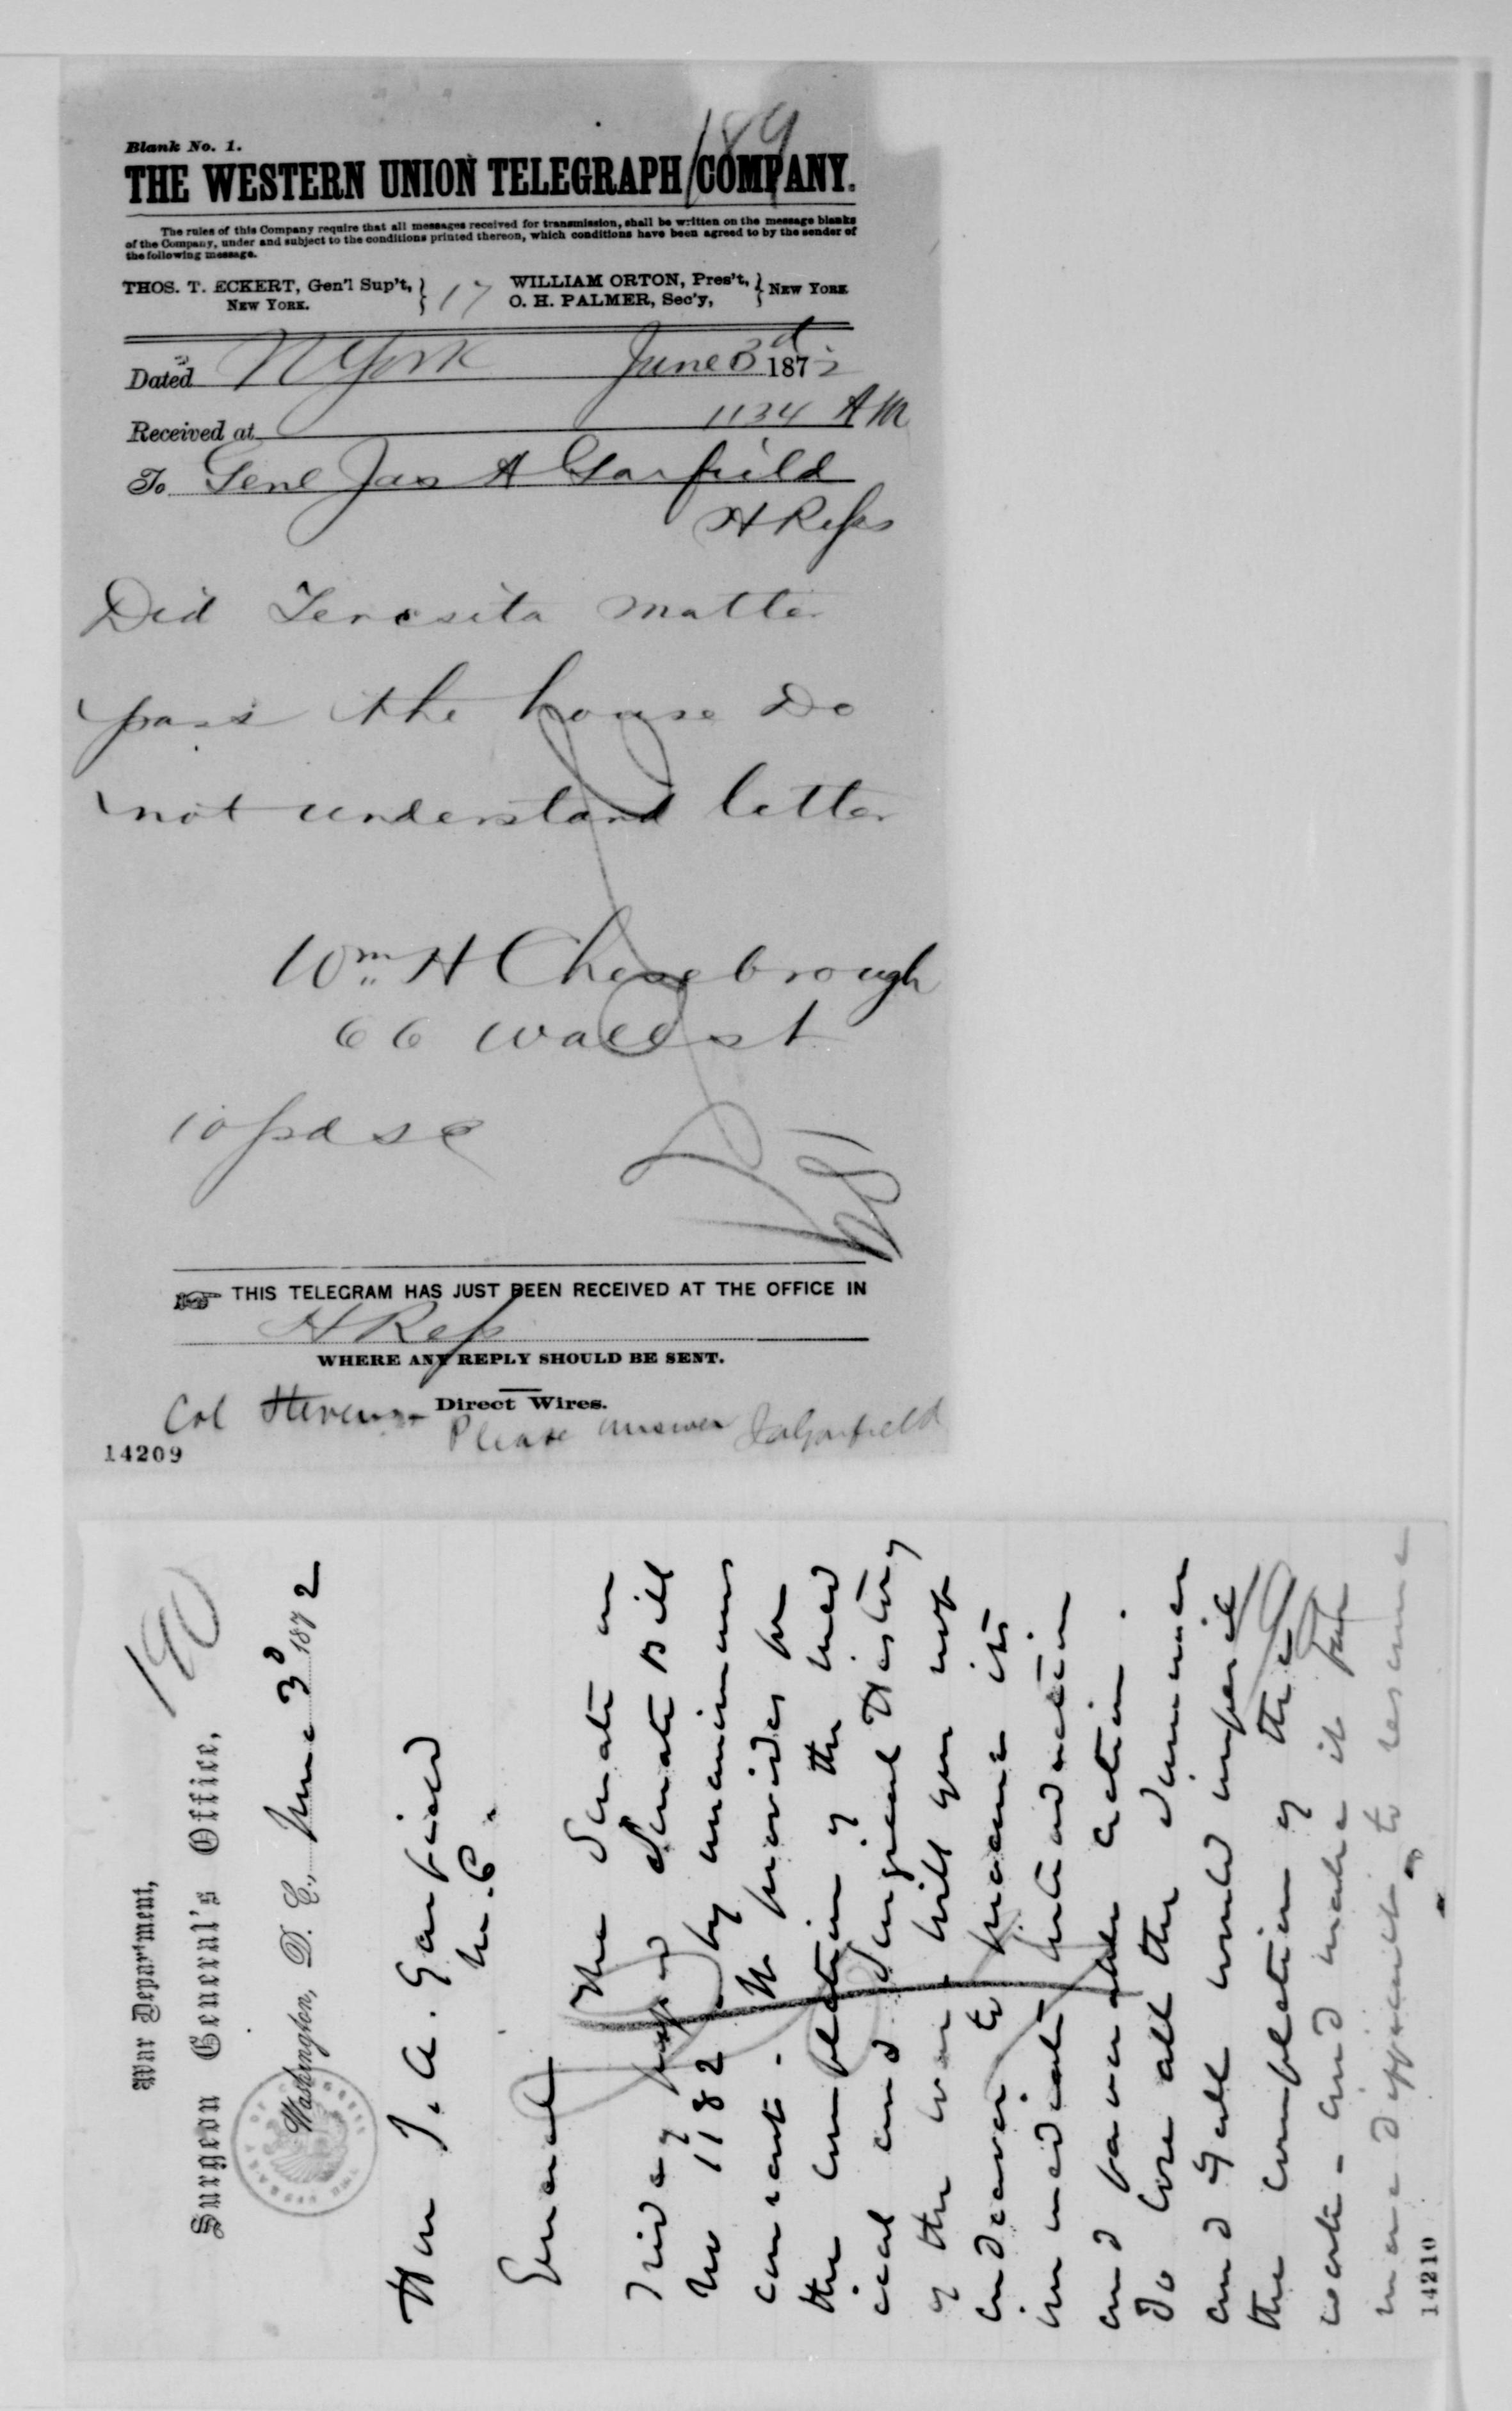 189
Blank No. 1.
THE WESTERN UNION TELEGRAPH COMPANY.
The rules of this Company require that all messages received for transmission, shall be written on the message blanks
of the Company, under and subject to the conditions printed thereon, which conditions have been agreed to by the sender of
the following message.
THOS. T. ECKERT, Gen'l Sup't, } 17 WILLIAM ORTON, Pres't, } NEW YORK
NEW YORK. O. H. PALMER, Sec'y,
Dated N York June 3d 1872
Received at 1134 AM
To Genl Jas A Garfield
H Reps
Did Teresita matter
pass the house Do
not understand letter
Wm H Chesebrough
66 Wall st
10 pd
189
THIS TELEGRAM HAS JUST BEEN RECEIVED AT THE OFFICE IN
H Reps
WHERE ANY REPLY SHOULD BE SENT.
Direct Wires.
Col Stevenson Please answer JAGarfield
14209
190
War Department,
Surgeon General's Office,
Washington, D. C., June 3d 1872
Hon J. A. Garfield
M.C.
General
The Senate on
Friday passed Senate Bill
No 1182 by unanimous
consent. It provides for
the completion of the Med
ical and Surgical History
of the war. Will you not
endeavor to procure its
immediate introduction
and favorable action.
To lose all the summer
and Fall would imperil
the completion of the
work - and make it far
more difficult to resume
14210